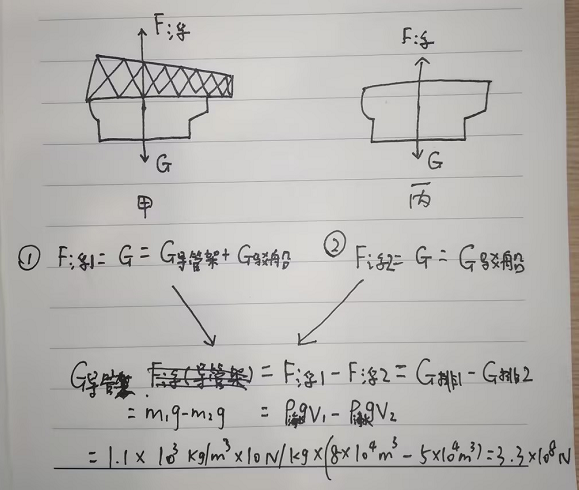 F浮
F浮
G
G
甲
丙
① F浮1 = G = G导管架 + G驳船
② F浮2 = G = G驳船
G导管架 = F浮1 - F浮2 = G排1 - G排2
= m₁g - m₂g = ρ海gV₁ - ρ海gV₂
= 1.1 × 10³ kg/m³ × 10 N/kg × (8×10⁴m³ - 5×10⁴m³) = 3.3×10⁸N